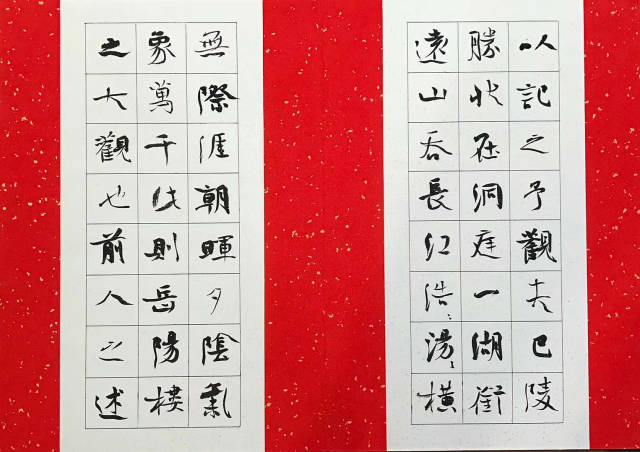 以記之予觀夫巴陵
勝狀在洞庭一湖銜
遠山吞長江浩〻湯〻橫
無際涯朝暉夕陰氣
象萬千此則岳陽樓
之大觀也前人之述